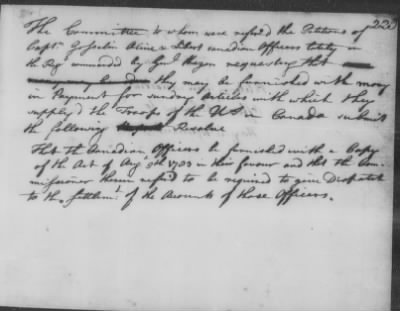 222
The Committee to whom were referd the Petitions of
Capt. Gosselin Olivie & Libert canadian Officers lately in
the Reg commanded by Genl Hazen requesting that
they may be furnished with money
in Payment for sundry articles with which they
supply'd the Troops of the US in Canada submit
the following Resolve
That the Canadian Officers be furnished with a Copy
of the Act of Augt 9th 1783 in their favour and that the Com-
missioner therein referd to be required to give Dispatch
to the Settlemt of the Accounts of those Officers.